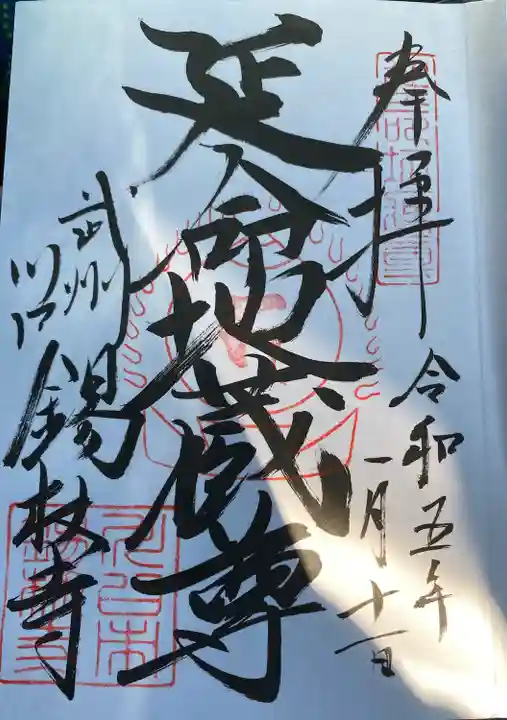 奉拝
令和五年
一月十一日
延命地蔵尊
武州
川口
錫杖寺